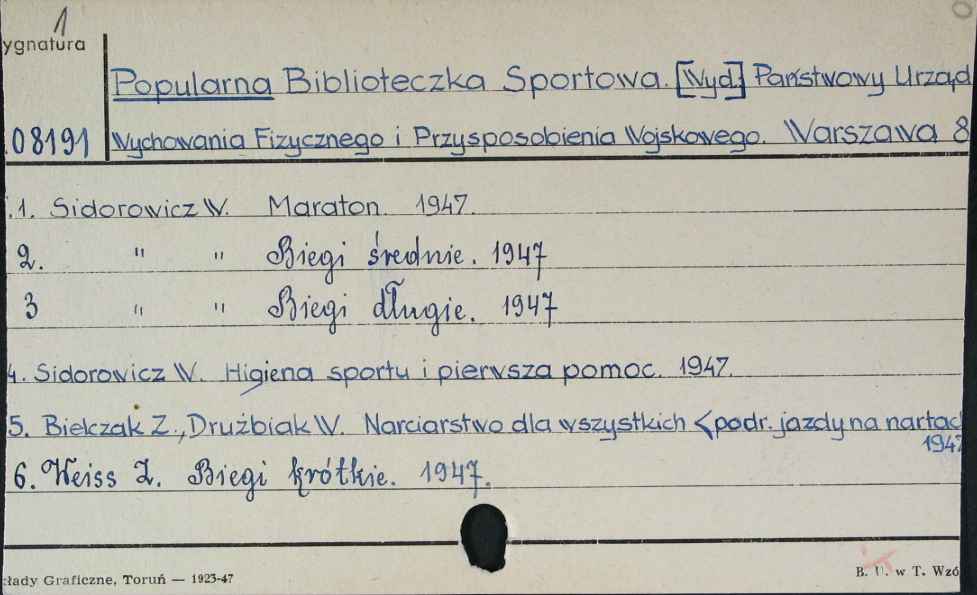 1
ygnatura
Popularna Biblioteczka Sportowa. [Wyd.] Państwowy Urząd
08191 Wychowania Fizycznego i Przysposobienia Wojskowego. Warszawa 8
.1. Sidorowicz W. Maraton. 1947.
2. " " Biegi średnie. 1947
3 " " Biegi długie. 1947
4. Sidorowicz W. Higiena sportu i pierwsza pomoc. 1947.
5. Bielczak Z., Drużbiak W. Narciarstwo dla wszystkich <podr. jazdy na nartac
1947
6. Weiss Z. Biegi krótkie. 1947.
kłady Graficzne, Toruń — 1923-47
B. U. w T. Wzó